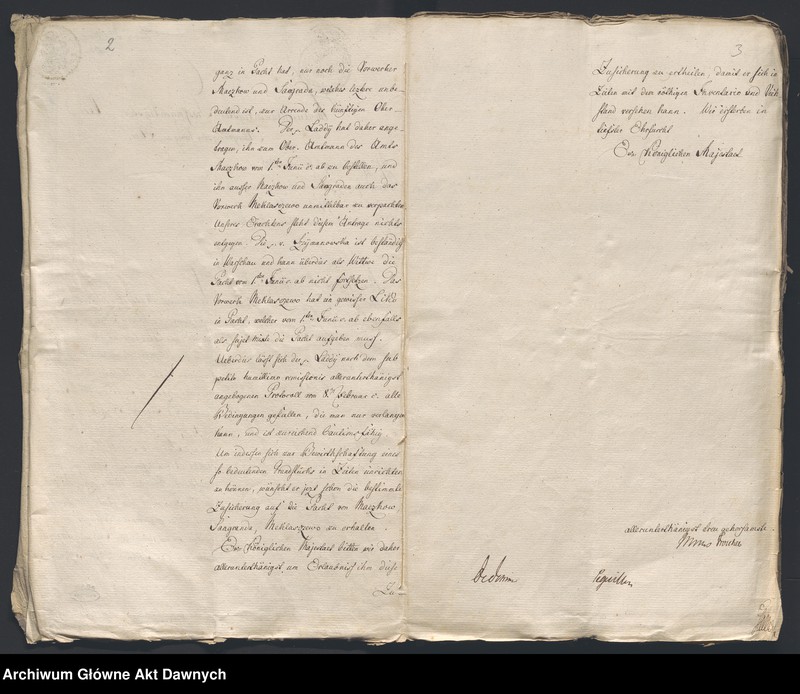 2
ganz in Pacht hat, nur noch die Vorwerker
Maczkow und Sangrada, welches leztre unbe-
deutend ist, zur Arrende des künftigen Ober-
Amtmanns. Der p. Laddÿ hat daher ange-
tragen, ihn zum Ober-Amtmann des Amts
Maczkow vom 1ten Junii c. ab zu bestellen, und
ihn ausser Maczkow und Sangraden auch das
Vorwerk Meklaszewo unmittelbar zu verpachten.
Unsres Erachtens steht diesem Antrage nichts
entgegen. Die p. v. Szymanowska ist beständig
in Warschau und kann überdies als Wittwe die
Pacht vom 1ten Junii c. ab nicht fortsetzen. Das
Vorwerk Meklaszewo hat ein gewisser
in Pacht, welcher vom 1ten Junii c. ab ebenfalls
als die Pacht aufgeben muß.
Ueberdies läßt sich der p. Laddÿ nach dem sub
petito humillimo remissionis allerunterthänigst
angebogenen Protocoll vom 8ten Februar c. alle
Bedingungen gefallen, die man nur verlangen
kann, und ist zureichend Cautionsfähig.
Um indessen sich zur Bewirthschaftung eines
so bedeutenden Grundstücks in Zeiten einrichten
zu können, wünscht er jezt schon die bestimmte
Zusicherung auf die Pacht von Maczkow,
Sangrada, Meklaszewo zu erhalten.
Ew. Königlichen Majestaet bitten wir daher
allerunterthänigst, um Erlaubniß ihm diese
Zu-
3
Zusicherung zu ertheilen, damit er sich in
Zeiten mit dem nöthigen Inventario und Vieh-
stand versehen kann. Wir ersterben in
tiefster Ehrfurcht
Ew. Königlichen Majestaet
allerunterthänigst treu gehorsamste
Archiwum Główne Akt Dawnych